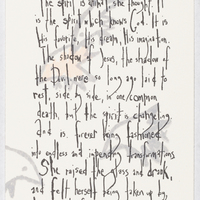 The spirit is animal, she thought. It
is the spirit which knows God. It is
His
His dream, His imagination.
The shadow of Jesus, the shadow of
the
so long ago laid to
rest side by side, in one common
death, but the spirit is changeling
and is forever being fashioned
into endless and transformations.
She raised the glass and drank,
and felt herself being taken up by